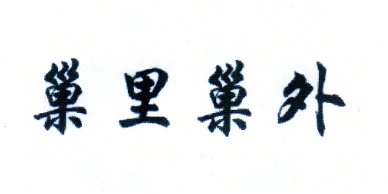 巢里巢外